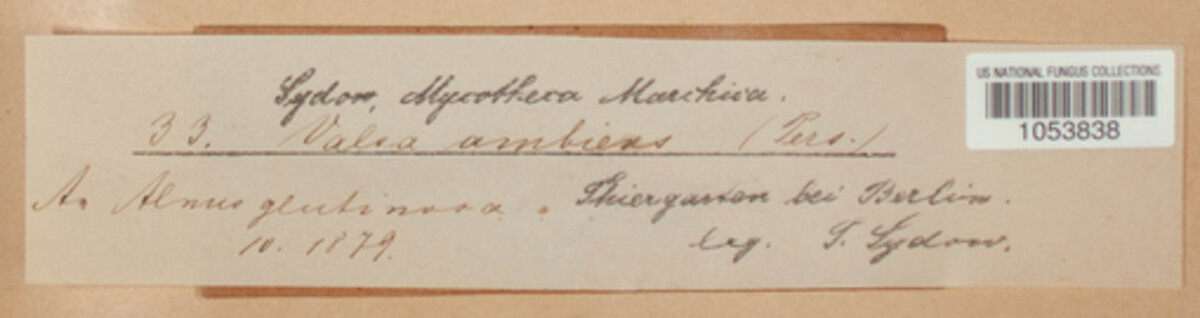 Sydow, Mycotheca Marchica.
33. Valsa ambiens (Pers.)
An Alnus glutinosa. Thiergarten bei Berlin.
10. 1879. leg. P. Sydow.
US NATIONAL FUNGUS COLLECTIONS
1053838